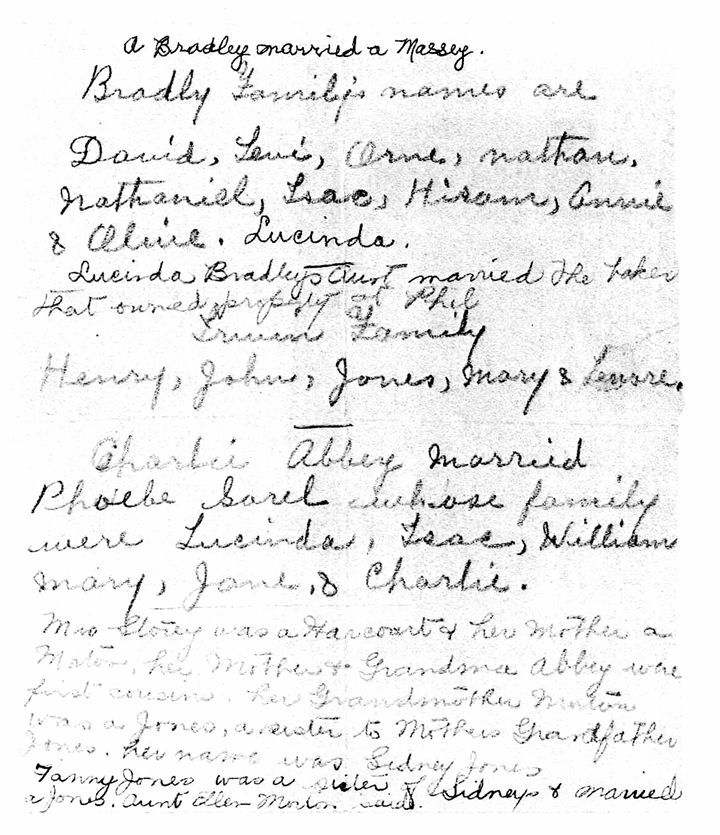 A Bradley married a Massey.
Bradly Family's names are
David, Levi, Orne, nathan,
Nathaniel, Isac, Hiram, Annie
& Oliue. Lucinda.
Lucinda Bradley's Aunt married the baker
that owned property at Phil
Irwin Family
Henry, John, Jones, Mary & Lenore.
Charlie Abbey Married
Phoebe Sorel whose family
were Lucinda, Isac, William
Mary, Jane, & Charlie.
Mrs Storey was a Harcourt & her Mother a
Morton, her Mother & Grandma Abbey were
first cousins. her Grandmother Morton
was a Jones, a sister to Mothers Grandfather
Jones. her name was Sidney Jones
Fanny Jones was a sister of Sidneys & married
a Jones. Aunt Ellen Morton said.